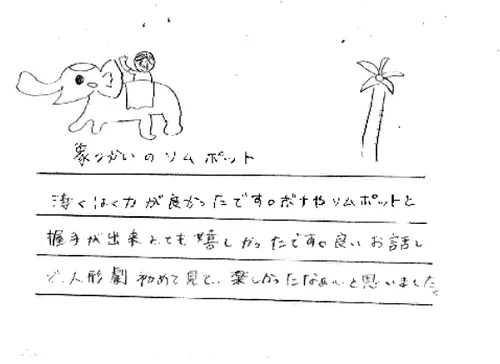 象つかいのソムポット
凄くはく力が良かったです。ボナやソムポットと
握手が出来とても嬉しかったです。良いお話し
で、人形劇初めて見て、楽しかったなぁ〜と思いました。